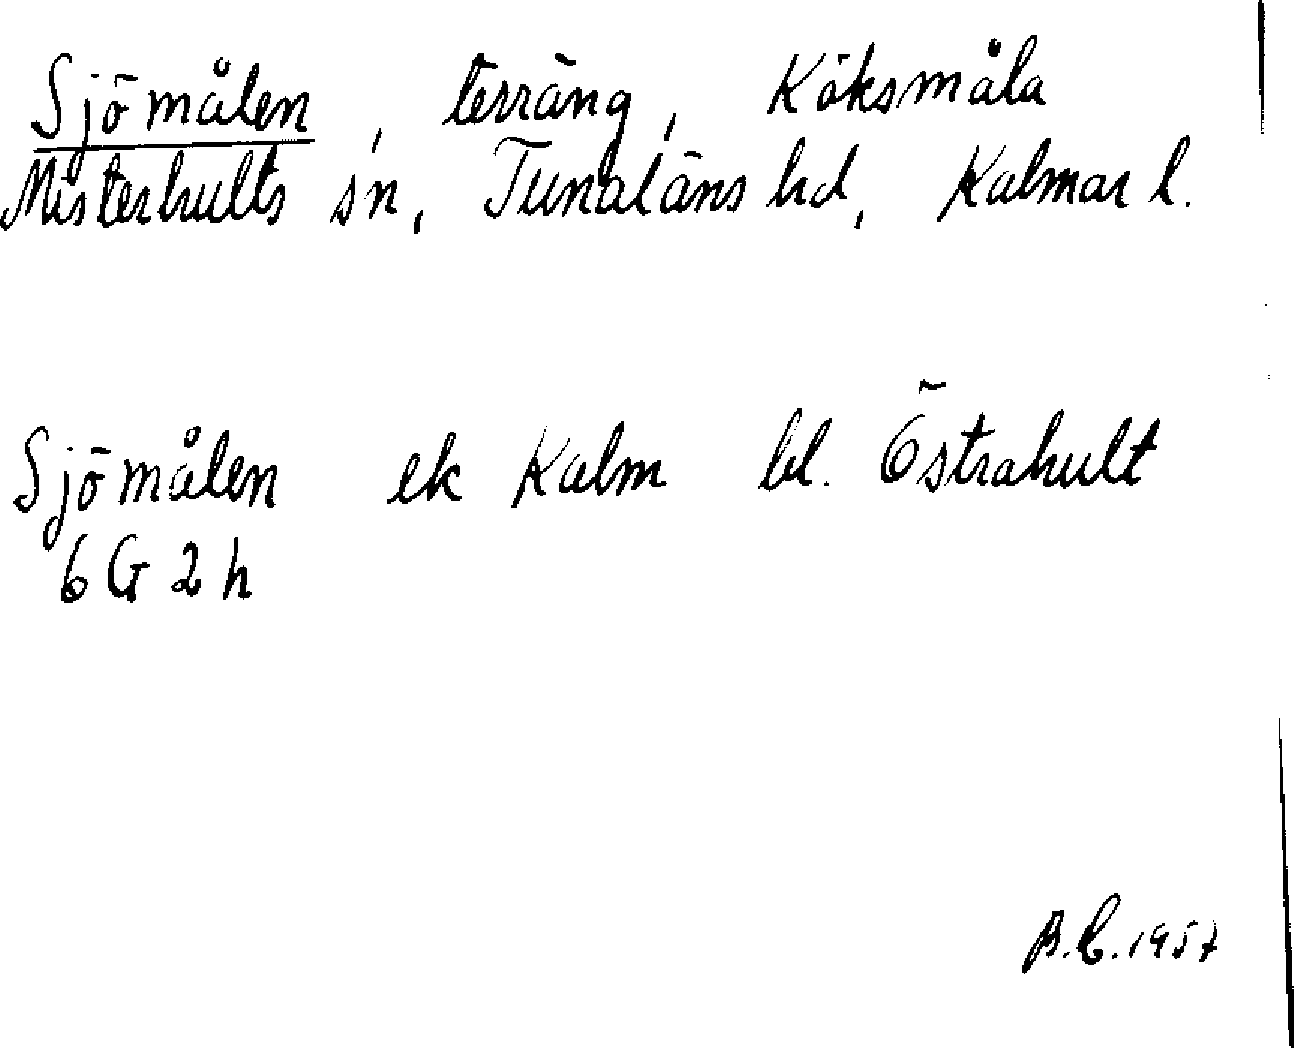 Sjömålen, terräng, Köksmåla
Misterhults sn, Tunaläns hd, Kalmar l.
Sjömålen ek Kalm bl. Östrahult
6 G 2 h
B.C. 1957